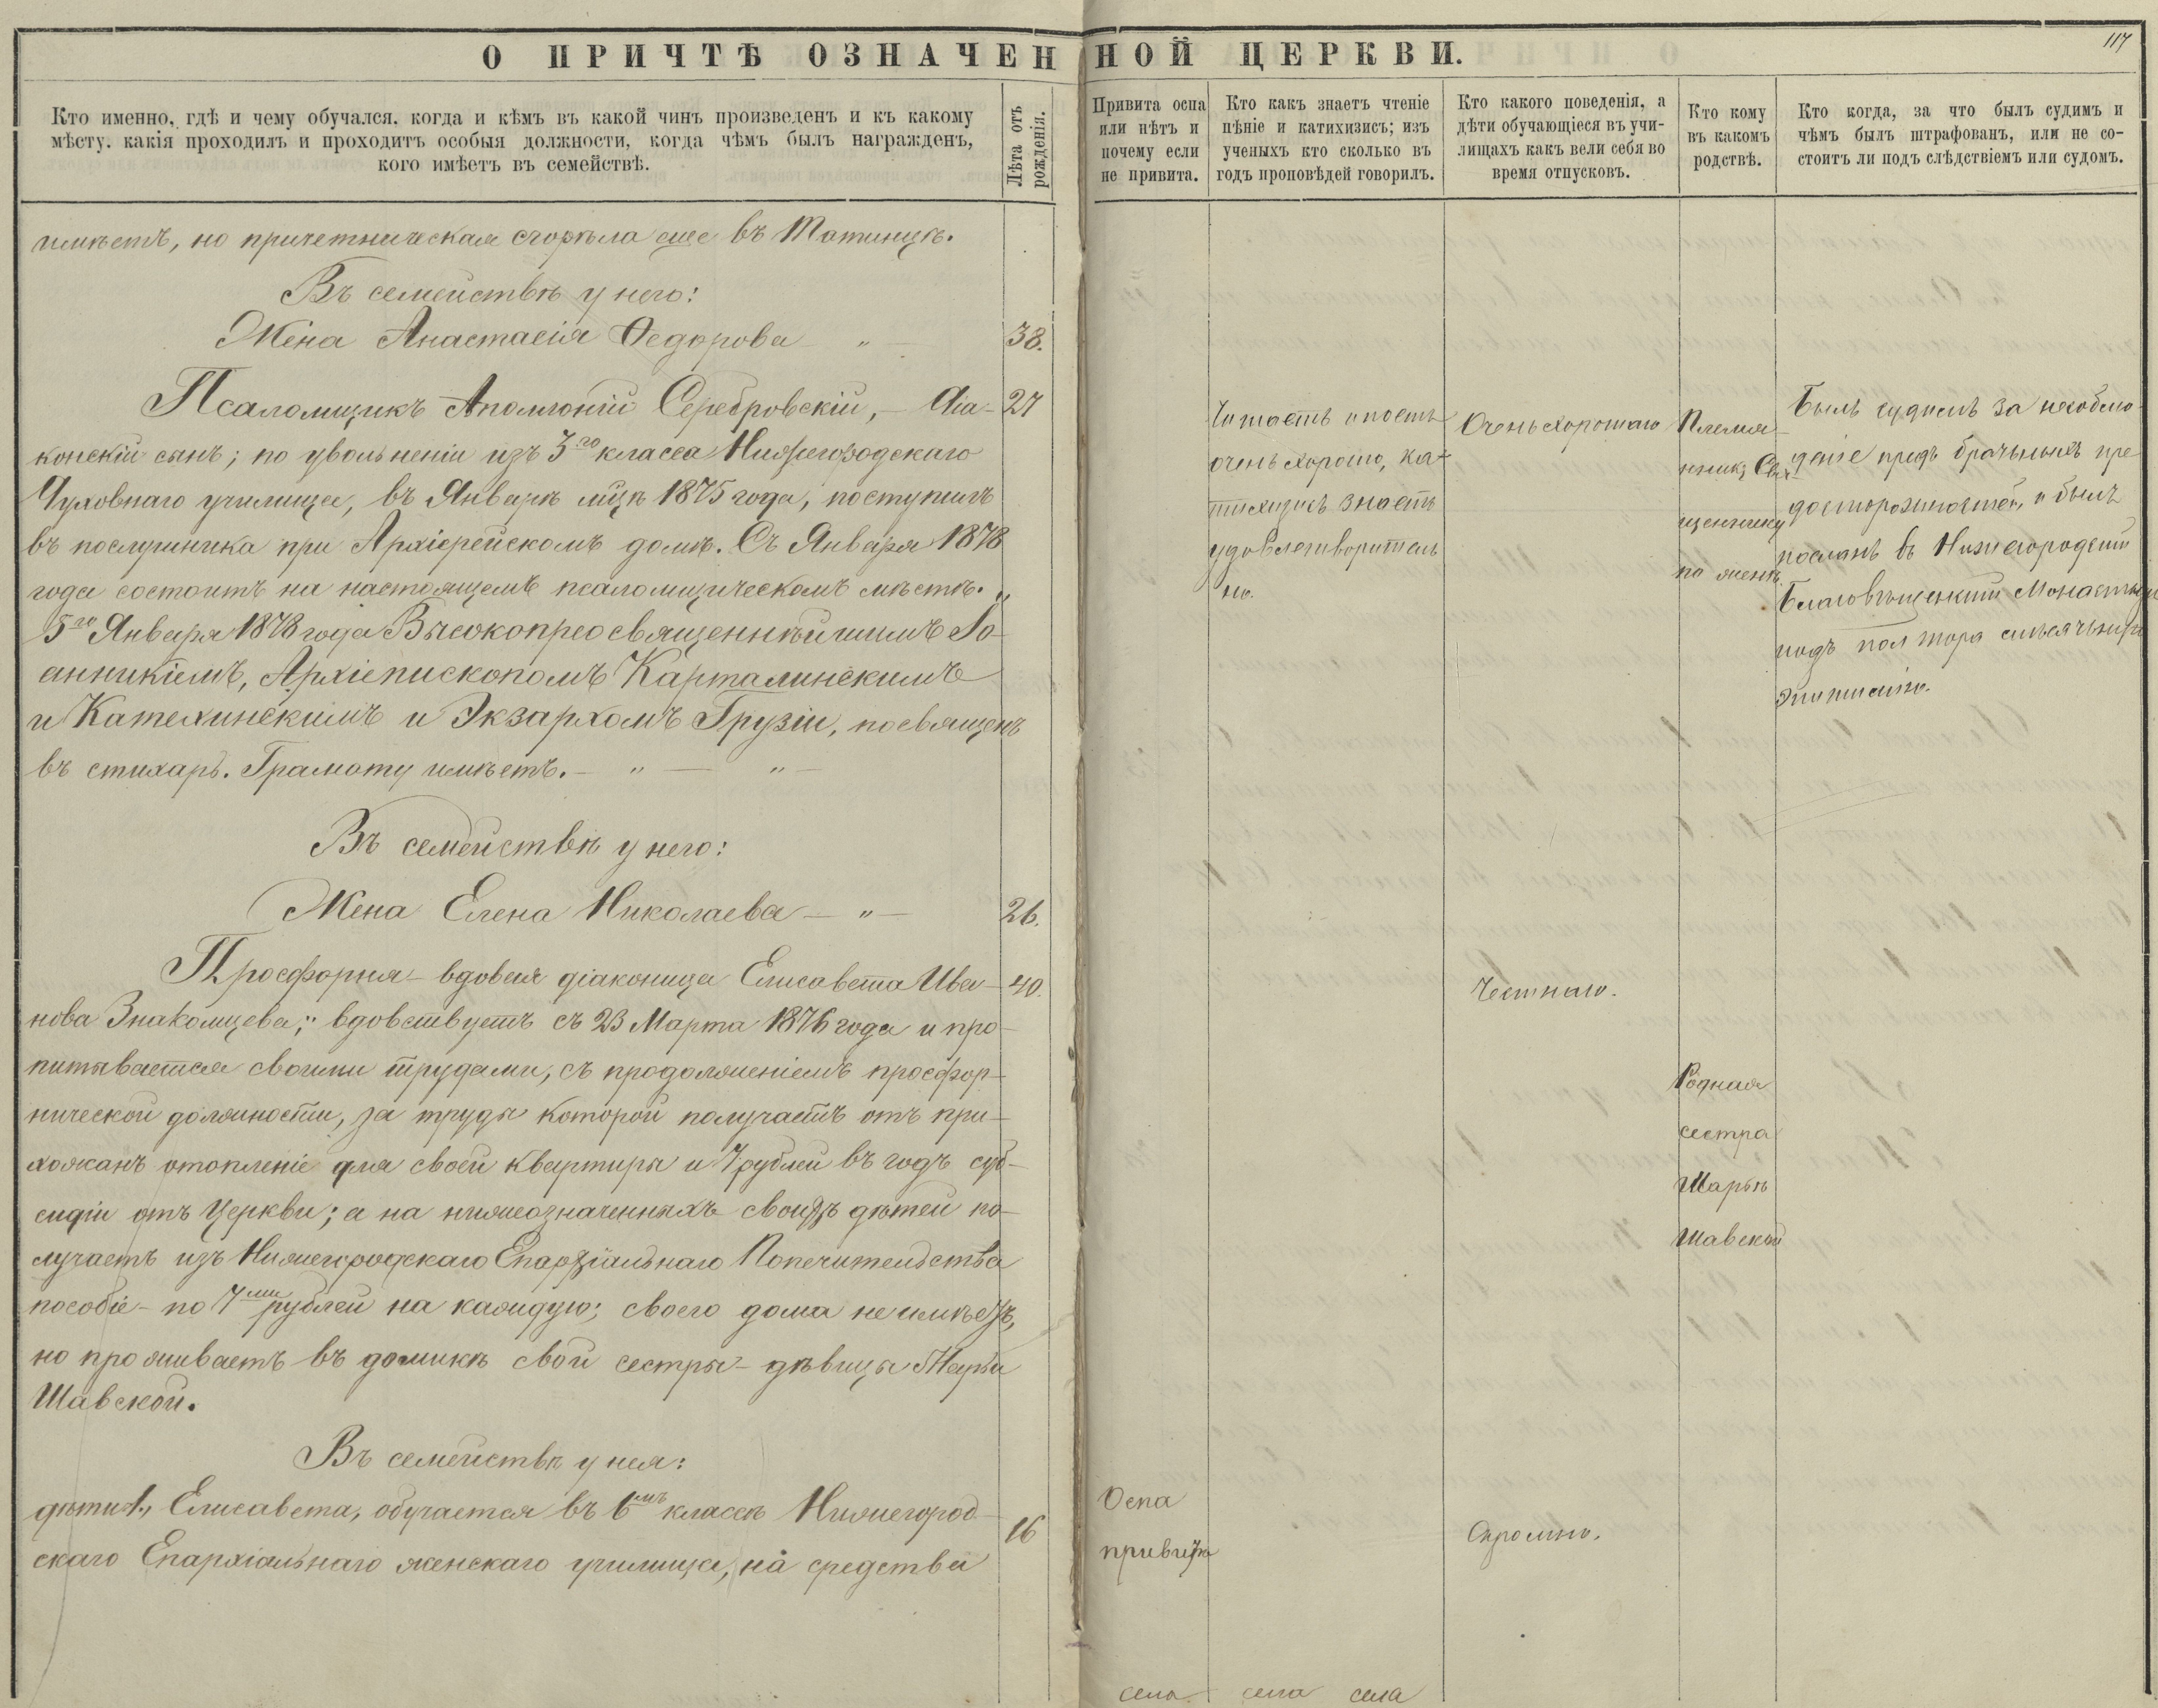 О ПРИЧТѢ ОЗНАЧЕННОЙ ЦЕРКВИ.
117
Кто именно, гдѣ и чему обучался, когда и кѣмъ въ какой чинъ произведенъ и къ какому
мѣсту, какія проходилъ и проходитъ особыя должности, когда чѣмъ былъ награжденъ,
кого имѣетъ въ семействѣ.
Лѣта отъ
рожденія.
Привита оспа
или нѣтъ и
почему если
не привита.
Кто какъ знаетъ чтеніе
пѣніе и катихизисъ; изъ
ученыхъ кто сколько въ
годъ проповѣдей говорилъ.
Кто какого поведенія, а
дѣти обучающіеся въ учи-
лищахъ какъ вели себя во
время отпусковъ.
Кто кому
въ какомъ
родствѣ.
Кто когда, за что былъ судимъ и
чѣмъ былъ штрафованъ, или не со-
стоитъ ли подъ слѣдствіемъ или судомъ.
имѣетъ, но причетническая сгорѣла еще въ Татинцѣ.
Въ семействѣ у него:
Жена Анастасія Ѳедорова — „ —
38.
Псаломщикъ Аполлоній Серебровскій, — Діа-
27
конскій сынъ; по увольненіи изъ 3го класса Нижегородскаго
Духовнаго училища, въ Январѣ мцѣ 1875 года, поступилъ
въ послушника при Архіерейскомъ домѣ. Съ Января 1878
года состоитъ на настоящемъ псаломщическомъ мѣстѣ. „
5го Января 1878 года Высокопреосвященнѣйшимъ Іо-
анникіемъ, Архіепископомъ Карталинскимъ
и Катехинскимъ и Экзархомъ Грузіи, посвященъ
въ стихарь. Грамоту имѣетъ. — „ — „ —
Читаетъ и поетъ
очень хорошо, ка-
тихизисъ знаетъ
удовлетворитель
но.
Очень хорошаго
Племя-
нникъ Свя-
щеннику
по женѣ.
Былъ судимъ за несоблю-
деніе предъ брачныхъ пре
досторожностей, и былъ
посланъ въ Нижегородскій
Благовѣщенскій Монастырь
подъ полтора мѣсячную
Эпитимію.
Въ семействѣ у него:
Жена Елена Николаева — „ —
26.
Просфорня — вдовая діаконица Елисавета Ива-
40.
нова Знаменщева; „ вдовствуетъ съ 23 Марта 1876 года и про-
питывается своими трудами, съ продолженіемъ просфор-
нической должности, за труды которой получаетъ отъ при-
хожанъ отопленіе для своей квартиры и 7 рублей въ годъ суб-
сидіи отъ Церкви; а на нижеозначенныхъ своихъ дѣтей по-
лучаетъ изъ Нижегородскаго Епархіальнаго Попечительства
пособіе — по 7ми рублей на каждую; своего дома не имѣетъ,
но проживаетъ въ домикѣ свой сестры — дѣвицы Марьи
Шавской.
Честнаго.
Родная
сестра
Марьѣ
Шавской
Въ семействѣ у нея:
дѣти 1, Елисавета, обучается въ 6мъ классѣ Нижегород-
скаго Епархіальнаго женскаго училища, на средства
16
Оспа
привита
Скромно.
села села села